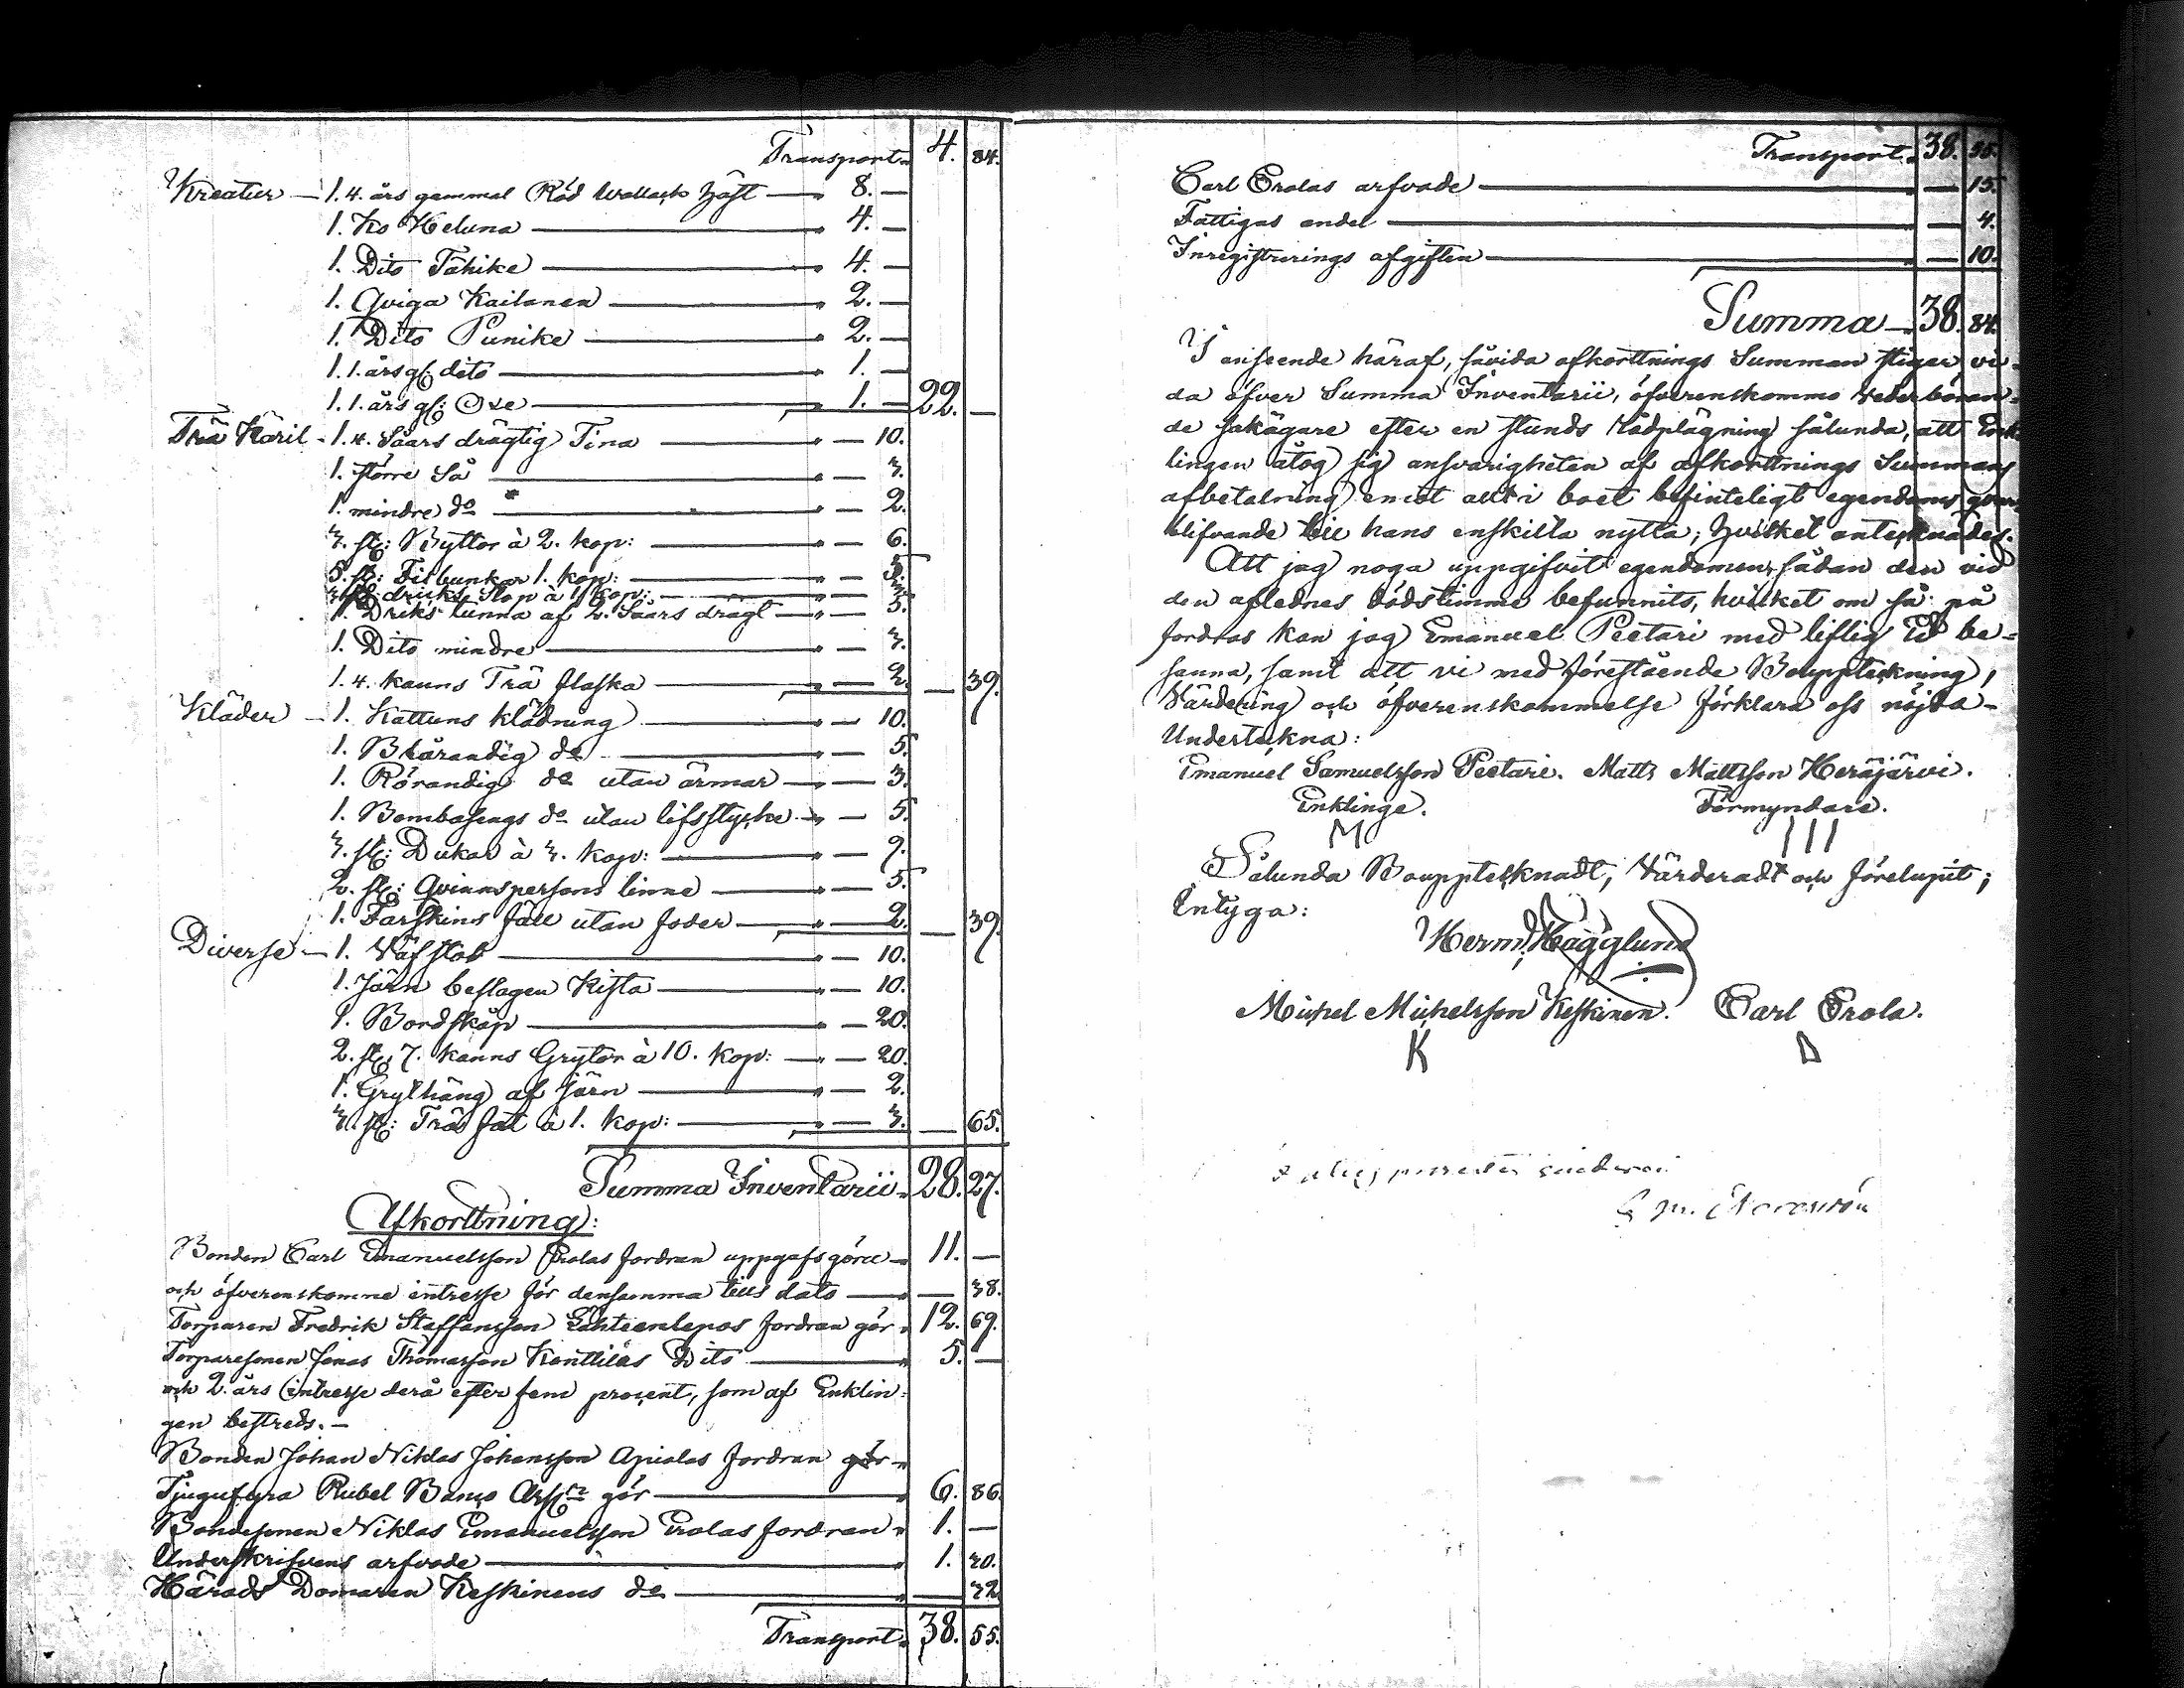 Transport 4. 84.
Kreatur — 1. 4. års gammal Röd Wallack Häst — 8. —
1. Ko Heluna — 4. —
1. Dito Tähike — 4. —
1. Qviga Kailanen — 2. —
1. Dito Punike — 2. —
1. 1. års gl: dito — 1. —
1. 1. års gl: Oxe — 1. — 22. —
Trä Käril - 1. 4. Såars drägtig Tina — 10.
1. större Så — 3.
1. mindre do — 2.
3. st: Byttor à 2. kop: — 6.
5. st: Filbunkar 1. kop: — 5.
3. st: dricks Stop à 1. kop: — 3.
1. Driks tunna af 2. Såars drägt — 5.
1. Dito mindre — 3.
1. 4. kanns Trä flaska — 2. — 39.
Kläder — 1. Kattuns klädning — 10.
1. Blårandig do — 5.
1. Rörandig do utan ärmar — 3.
1. Bombasengs do utan lifsstycke — 5.
3. st: Dukar à 3. kop: — 9.
2. st: Qvinnspersons linne — 5.
1. Fårskins fäll utan foder — 2. — 39.
Diverse — 1. Väfstol — 10.
1. Järn beslagen Kista — 10.
1. Bordskåp — 20.
2. st. 7. kanns Grytor à 10. kop: — 20.
1. Grythäng af järn — 2.
3. st: Trä fat à 1. kop: — 3. — 65.
Summa Inventarii 28. 27.
Afkorttning:
Bonden Carl Emanuelsson Erolas fordran uppgafs göra 11. —
och öfverenskomne intresse för densamma tills dato — 38.
Torparen Fredrik Staffansson Lähteenlepos fordran gör 12. 69.
Torparesonen Jonas Thomasson Konttilas Dito — 5. —
och 2. års intresse derå efter fem procent, som af Enklin=
gen bestreds. —
Bonden Johan Niklas Johansson Apialas fordran gör
Tjugufyra Rubel Banco Assr gör — 6. 86.
Bondesonen Niklas Emanuelsson Erolas fordran 1. —
Underskrifvens arfvode — 1. 30.
Härads Domaren Keskinens do — 32
Transport 38. 55.
Transport 38. 55.
Carl Erolas arfvode — 15.
Fattigas andel — 4.
Inregistrerings afgiften — 10.
Summa 38. 84.
I anseende häraf, såvida afkorttnings Summan stiger vi-
da öfver Summa Inventarii, öfverenskommo Vederböran=
de sakägare efter en stunds rådplägning sålunda, att Enk
lingen åtog sig ansvarigheten af afkorttnings Summans
afbetalning emot allt i boet befinteligt egendoms qvar
blifvande till hans enskilta nytta; hvilket antecknades.
Att jag noga uppgifvit egendomen sådan den vid
den aflednes dödstimme befunnits, hvilket om så på
fordras kan jag Emanuel Peetari med liflig Ed be=
sanna, samt att vi med förestående Bouppteckning,
Värdering och öfverenskommelse förklara oss nöjda —
Underteckna:
Emanuel Samuelsson Peetari. Matts Mattsson Heräjärvi.
Enklinge. Förmyndare.
M III
Sålunda Bouppteknadt, Värderadt och föreluput;
Intyga:
Herm: Hägglund
Michel Michelsson Keskinen. Carl Erola.
K D